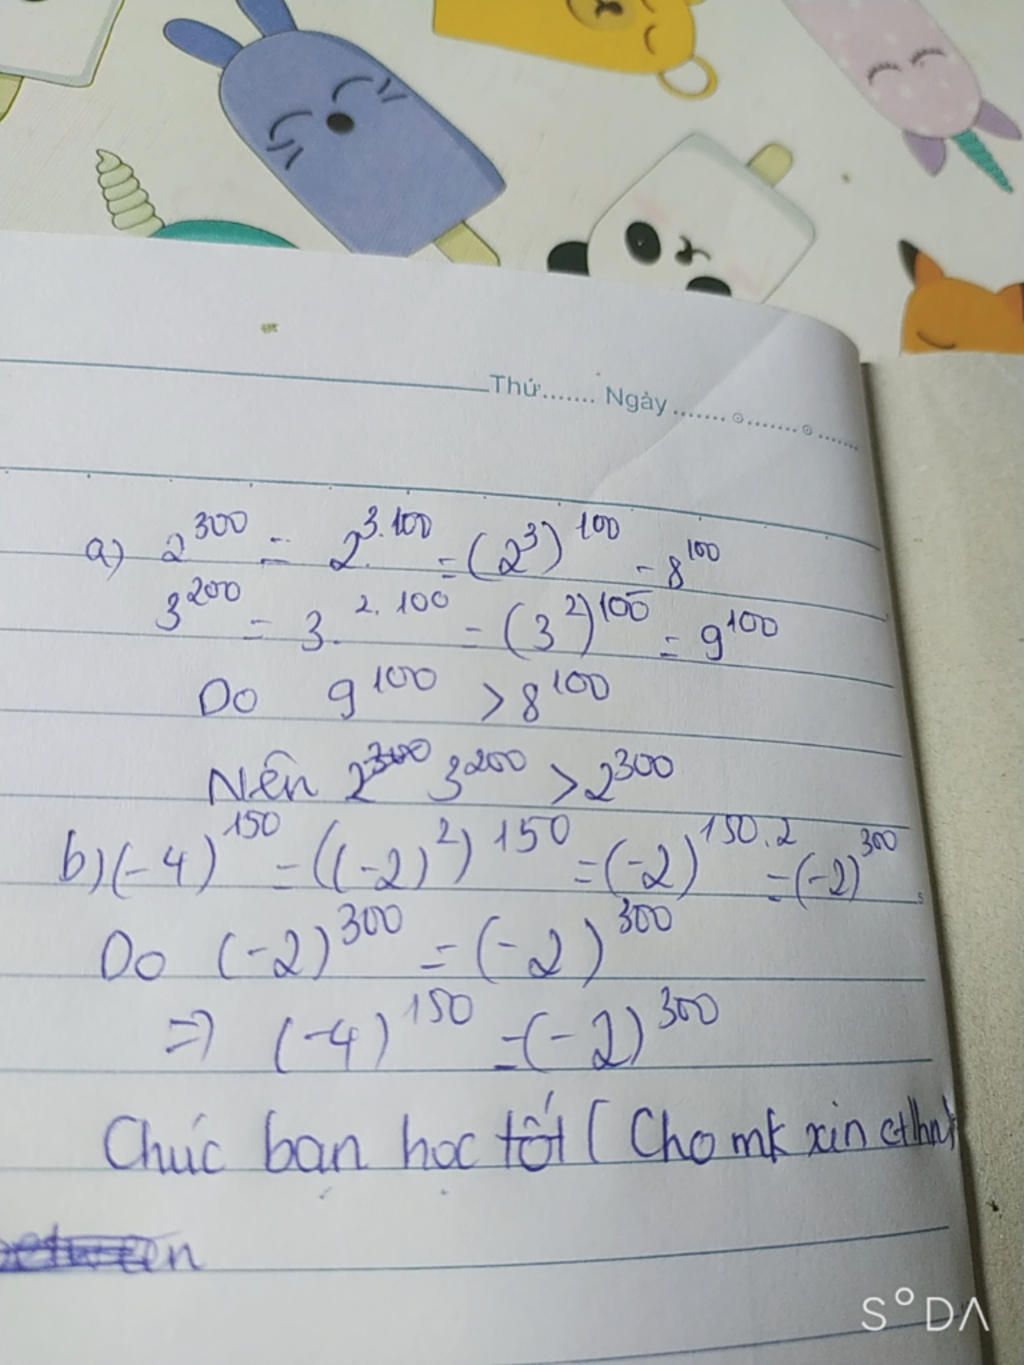 Thứ....... Ngày ....... ......... .......
a) 2^300 = 2^3.100 = (2^3)^100 = 8^100
3^200 = 3^2.100 = (3^2)^100 = 9^100
Do 9^100 > 8^100
Nên 3^200 > 2^300
b) (-4)^150 = ((-2)^2)^150 = (-2)^150.2 = (-2)^300
Do (-2)^300 = (-2)^300
=> (-4)^150 = (-2)^300
Chúc bạn học tốt ( Cho mk xin ctlhn)
SODA